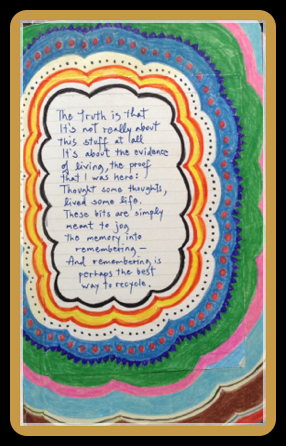 The truth is that
It's not really about
this stuff at all
It's about the evidence
of living, the proof
that I was here:
Thought some thoughts,
lived some life.
These bits are simply
meant to jog
the memory into
remembering –
And remembering is
perhaps the best
way to recycle.